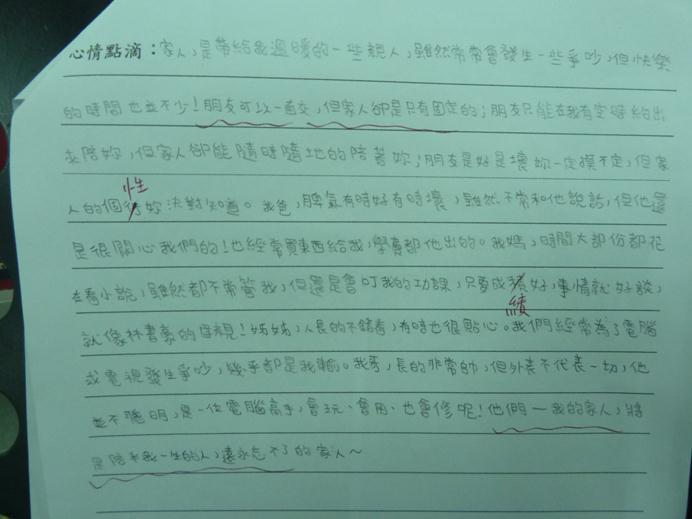 心情點滴：家人，是帶給我溫暖的一些親人，雖然常常會發生一些爭吵，但快樂
的時間也並不少！朋友可以一直交，但家人卻是只有固定的；朋友只能在我有空時約出
去陪妳，但家人卻能隨時隨地的陪著妳；朋友是好是壞妳一定摸不定，但家
人的個性妳決對知道。我爸，脾氣有時好有時壞，雖然不常和他說話，但他還
是很關心我們的！也經常買東西給我，學費都他出的。我媽，時間大部份都花
在看小說，雖然都不常管我，但還是會叮我的功課，只要成績好，事情就好談，
就像林書豪的母親！姊姊，人長的不錯看，有時也很貼心。我們經常為了電腦
或電視發生爭吵，幾乎都是我輸。我哥，長的非常帥，但外表不代表一切，他
並不聰明，是一位電腦高手，會玩、會用、也會修呢！他們—我的家人，將
是陪伴我一生的人，永忘不了的家人～